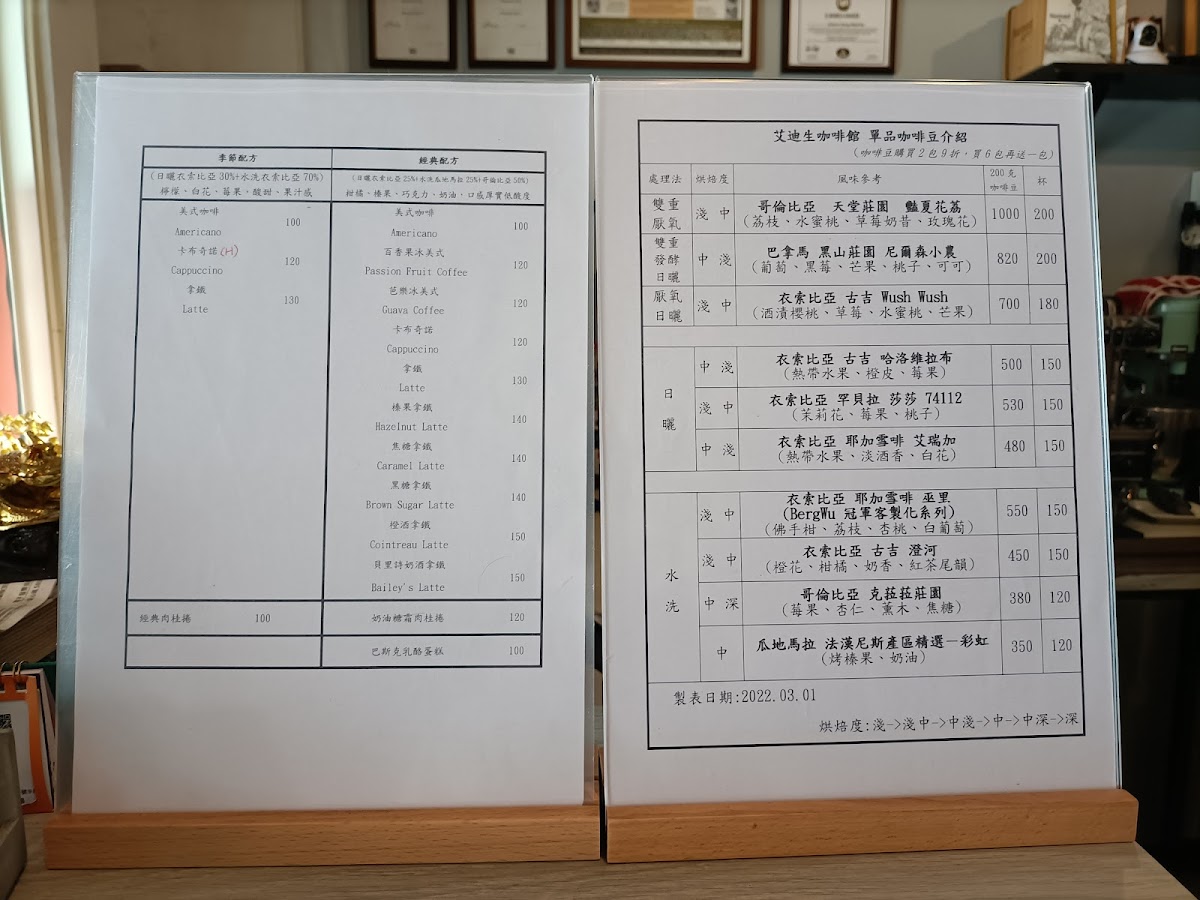 季節配方
(日曬衣索比亞30%+水洗衣索比亞70%)
檸檬、白花、莓果,酸甜、果汁感
美式咖啡
Americano 100
卡布奇諾(H)
Cappuccino 120
拿鐵
Latte 130
經典肉桂捲 100
經典配方
(日曬衣索比亞25%+水洗瓜地馬拉25%+哥倫比亞50%)
柑橘、榛果、巧克力、奶油,口感厚實低酸度
美式咖啡
Americano 100
百香果冰美式
Passion Fruit Coffee 120
芭樂冰美式
Guava Coffee 120
卡布奇諾
Cappuccino 120
拿鐵
Latte 130
榛果拿鐵
Hazelnut Latte 140
焦糖拿鐵
Caramel Latte 140
黑糖拿鐵
Brown Sugar Latte 140
橙酒拿鐵
Cointreau Latte 150
貝里詩奶酒拿鐵
Bailey's Latte 150
奶油糖霜肉桂捲 120
巴斯克乳酪蛋糕 100
艾迪生咖啡館 單品咖啡豆介紹
(咖啡豆購買2包9折,買6包再送一包)
處理法 烘焙度 風味參考 200克咖啡豆 杯
雙重厭氧 淺中 哥倫比亞 天堂莊園 豔夏花荔 1000 200
(荔枝、水蜜桃、草莓奶昔、玫瑰花)
雙重發酵日曬 中淺 巴拿馬 黑山莊園 尼爾森小農 820 200
(葡萄、黑莓、芒果、桃子、可可)
厭氧日曬 淺中 衣索比亞 古吉 Wush Wush 700 180
(酒漬櫻桃、草莓、水蜜桃、芒果)
日曬
中淺 衣索比亞 古吉 哈洛維拉布 500 150
(熱帶水果、橙皮、莓果)
淺中 衣索比亞 罕貝拉 莎莎 74112 530 150
(茉莉花、莓果、桃子)
中淺 衣索比亞 耶加雪啡 艾瑞加 480 150
(熱帶水果、淡酒香、白花)
水洗
淺中 衣索比亞 耶加雪啡 巫里 550 150
(BergWu 冠軍客製化系列)
(佛手柑、荔枝、杏桃、白葡萄)
淺中 衣索比亞 古吉 澄河 450 150
(橙花、柑橘、奶香、紅茶尾韻)
中深 哥倫比亞 克菈菈莊園 380 120
(莓果、杏仁、薰木、焦糖)
中 瓜地馬拉 法漢尼斯產區精選－彩虹 350 120
(烤榛果、奶油)
製表日期:2022.03.01
烘焙度:淺->淺中->中淺->中->中深->深